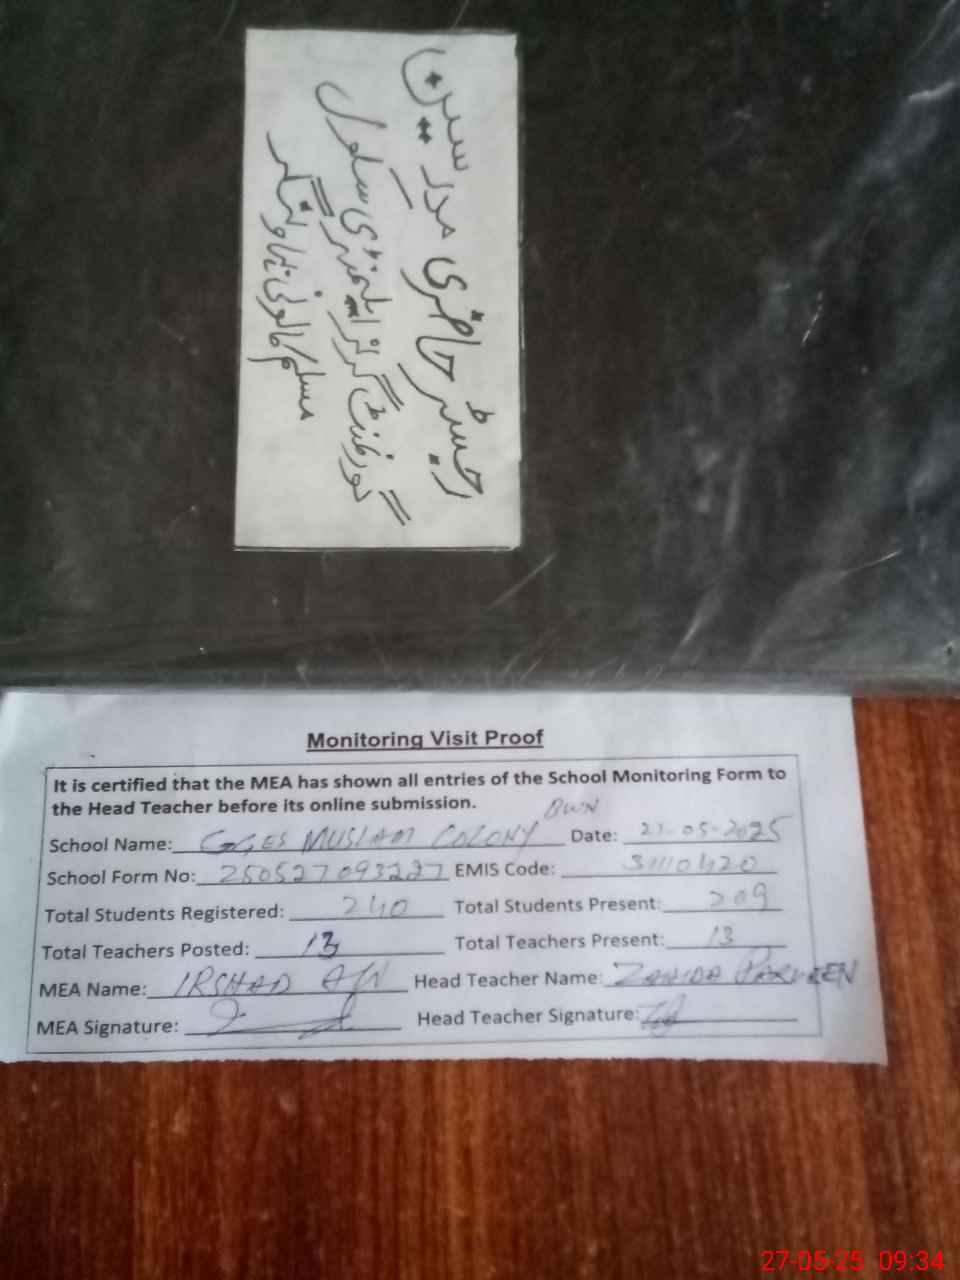 رجسٹر حاضری مدرسین
گورنمنٹ گرلز ایلیمنٹری سکول
مسلم کالونی بہاولنگر
Monitoring Visit Proof
It is certified that the MEA has shown all entries of the School Monitoring Form to
the Head Teacher before its online submission.
School Name: GGES MUSLAM COLONY BWN Date: 27-05-2025
School Form No: 250527093227 EMIS Code: 31110420
Total Students Registered: 240 Total Students Present: 209
Total Teachers Posted: 13 Total Teachers Present: 13
MEA Name: IRSHAD Head Teacher Name: ZAHIDA PARVEEN
MEA Signature: Head Teacher Signature:
27-05-25 09:34